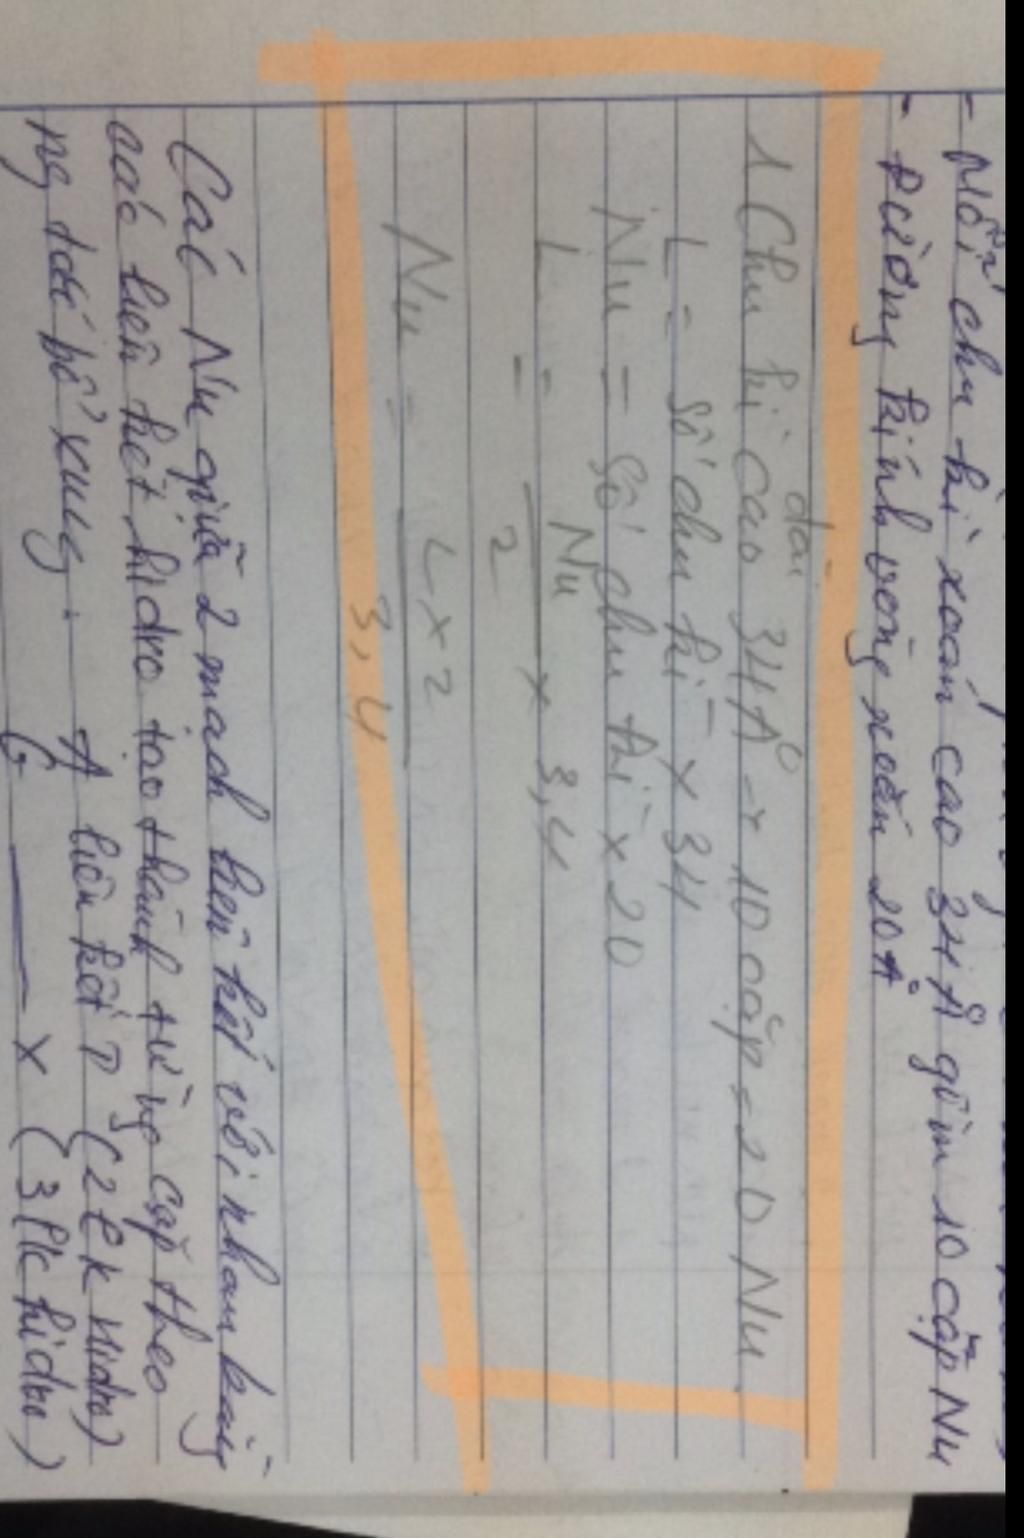 - Mỗi chu kì xoắn cao 34A° gồm 10 cặp Nu
- Đường kính vòng xoắn 20A°
dài
1 Chu kì cao 34A° → 10 cặp = 20 Nu
L = số chu kì × 34
Nu = số chu kì × 20
L = Nu/2 × 3,4
Nu = L × 2 / 3,4
Các Nu giữa 2 mạch liên kết với nhau bằng
các liên kết hidro tạo thành từng cặp theo
ng tắc bổ xung. A liên kết T (2 lk hidro)
G — X (3 lk hidro)